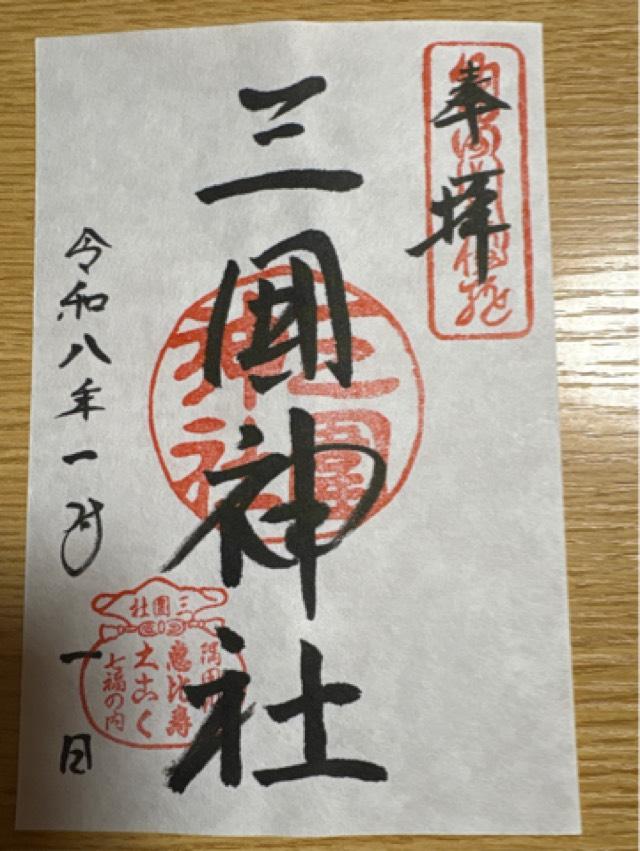 奉拝
三囲神社
三圍神社
令和八年一月一日
三圍社
隅田川
惠比壽
大こく
七福の内